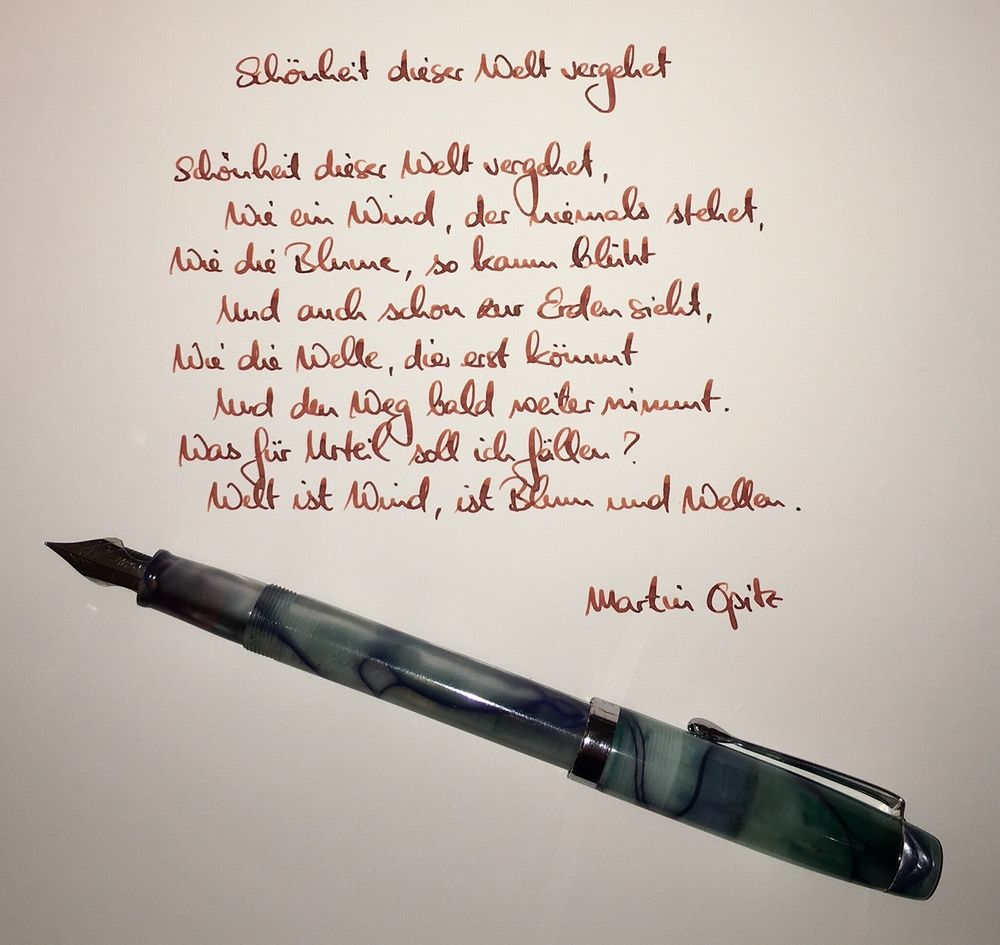 Schönheit dieser Welt vergehet
Schönheit dieser Welt vergehet,
Wie ein Wind, der niemals stehet,
Wie die Blume, so kaum blüht
Und auch schon zur Erden sieht,
Wie die Welle, die erst kömmt
Und den Weg bald weiter nimmt.
Was für Urteil soll ich fällen?
Welt ist Wind, ist Blum und Wellen.
Martin Opitz